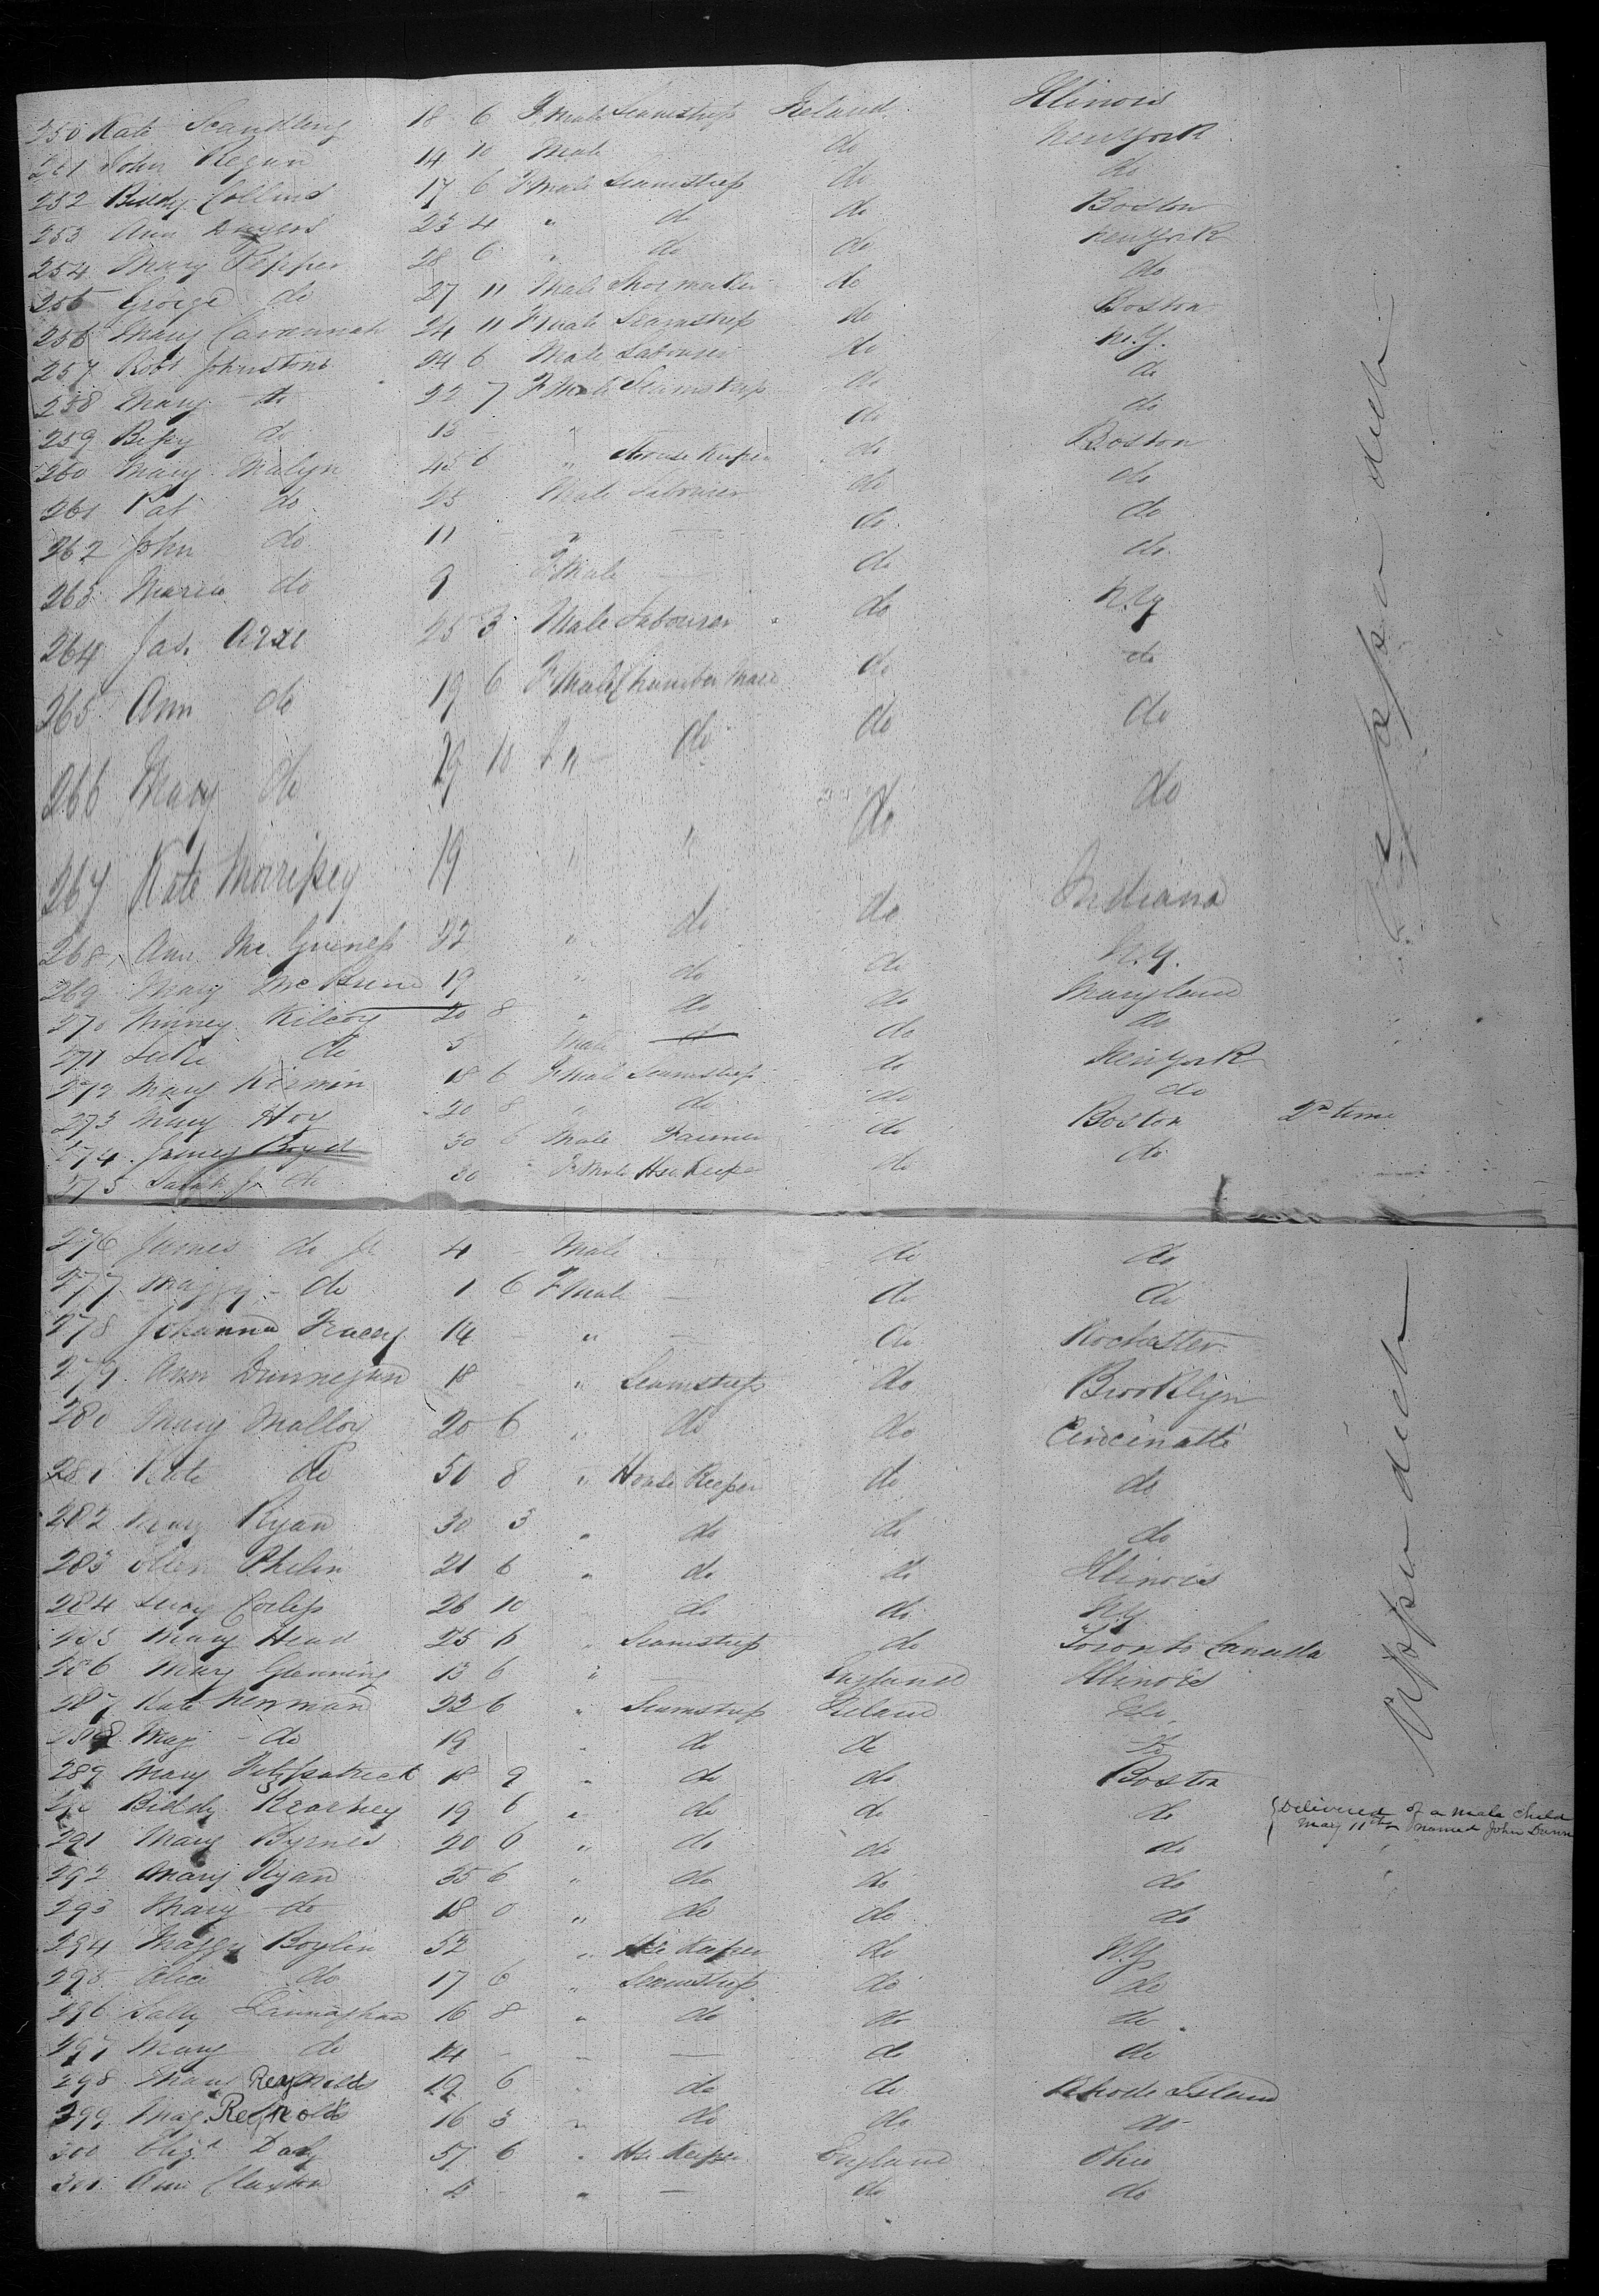 250 Kate Scandling 18 6 Fmale Seamstress Ireland Illinois
251 John Regan 14 10 Male — do New York
252 Biddy Collins 17 6 Fmale Seamstress do do
253 Ann 23 4 " do do Boston
254 Mary Pepper 28 6 " do do New York
255 George do 27 11 Male Shoemaker do do
256 Mary Cavannah 24 11 Fmale Seamstress do Boston
257 Robt Johnstone 24 6 Male Labourer do N.Y.
258 Mary do 22 7 Fmale Seamstress do do
259 Bessy do 13 " do do
260 Mary Malyn 45 6 " House Keeper do Boston
261 Pat do 23 Male Labourer do do
262 John do 11 " — do do
263 Maria do 9 Fmale — do do
264 Jas. 25 3 Male Labourer do N.Y
265 Ann do 19 6 Fmale Chamber Maid do do
266 Mary do 29 10 F " — do do do
267 Kate Morrissey 19 " " do do
268 Ann Mc Guiness 22 " do do Indiana
269 Mary Mc 19 " do do N.Y.
270 Winney Kilcoy 20 8 " do do Maryland
271 Luke do 5 Male do do do
272 Mary Kiernin 18 6 Fmale Seamstress do New York
273 Mary Hoy 20 8 " do do do
274 James Boyd 30 6 Male Farmer do Boston 2nd time
275 Sarah J. do 30 " Fmale Hse Keeper do do
276 James do Jr 4 - Male — do do
277 Maggy - do 1 6 Fmale — do do
278 Johanna Tracey 14 - " — do Rochester
279 Ann Dunnegan 18 - " Seamstress do Brooklyn
280 Mary Malloy 20 6 " do do Cincinatti
281 Kate do 50 8 " House Keeper do do
282 Ryan 30 3 " do do do
283 Ellen Phelin 21 6 " do do Illinois
284 Lucy Corless 26 10 do do N.Y
285 Mary Head 25 6 " Seamstress do Toronto Canada
286 Mary Glenning 13 6 " — England Illinois
287 Kate Newman 22 6 " Seamstress Ireland do
288 Mag - do 19 " do do do
289 Mary Fitzpatrick 18 9 " do do Boston
290 Biddy Kearney 19 6 " do do do { Delivered of a male child
May 11th named John Dunn
291 Mary Byrnes 20 6 " do do do "
292 Mary Ryan 35 6 " do do do "
293 Mary do 18 0 " do do do
294 Maggy Boylin 52 " Hse Keeper do N.Y
295 Alice do 17 6 " Seamstress do do
296 Sally 16 8 " do do do
297 Mary do 14 - - — do do
298 Mary Reynolds 19 6 " do do Rhode Island
299 Mag. Reynolds 16 3 " do do do
300 Eliz.h Daly 57 6 " Hse Keeper England Ohio
301 Ann Claxton 4 - " — do do
Appendich
Appendich